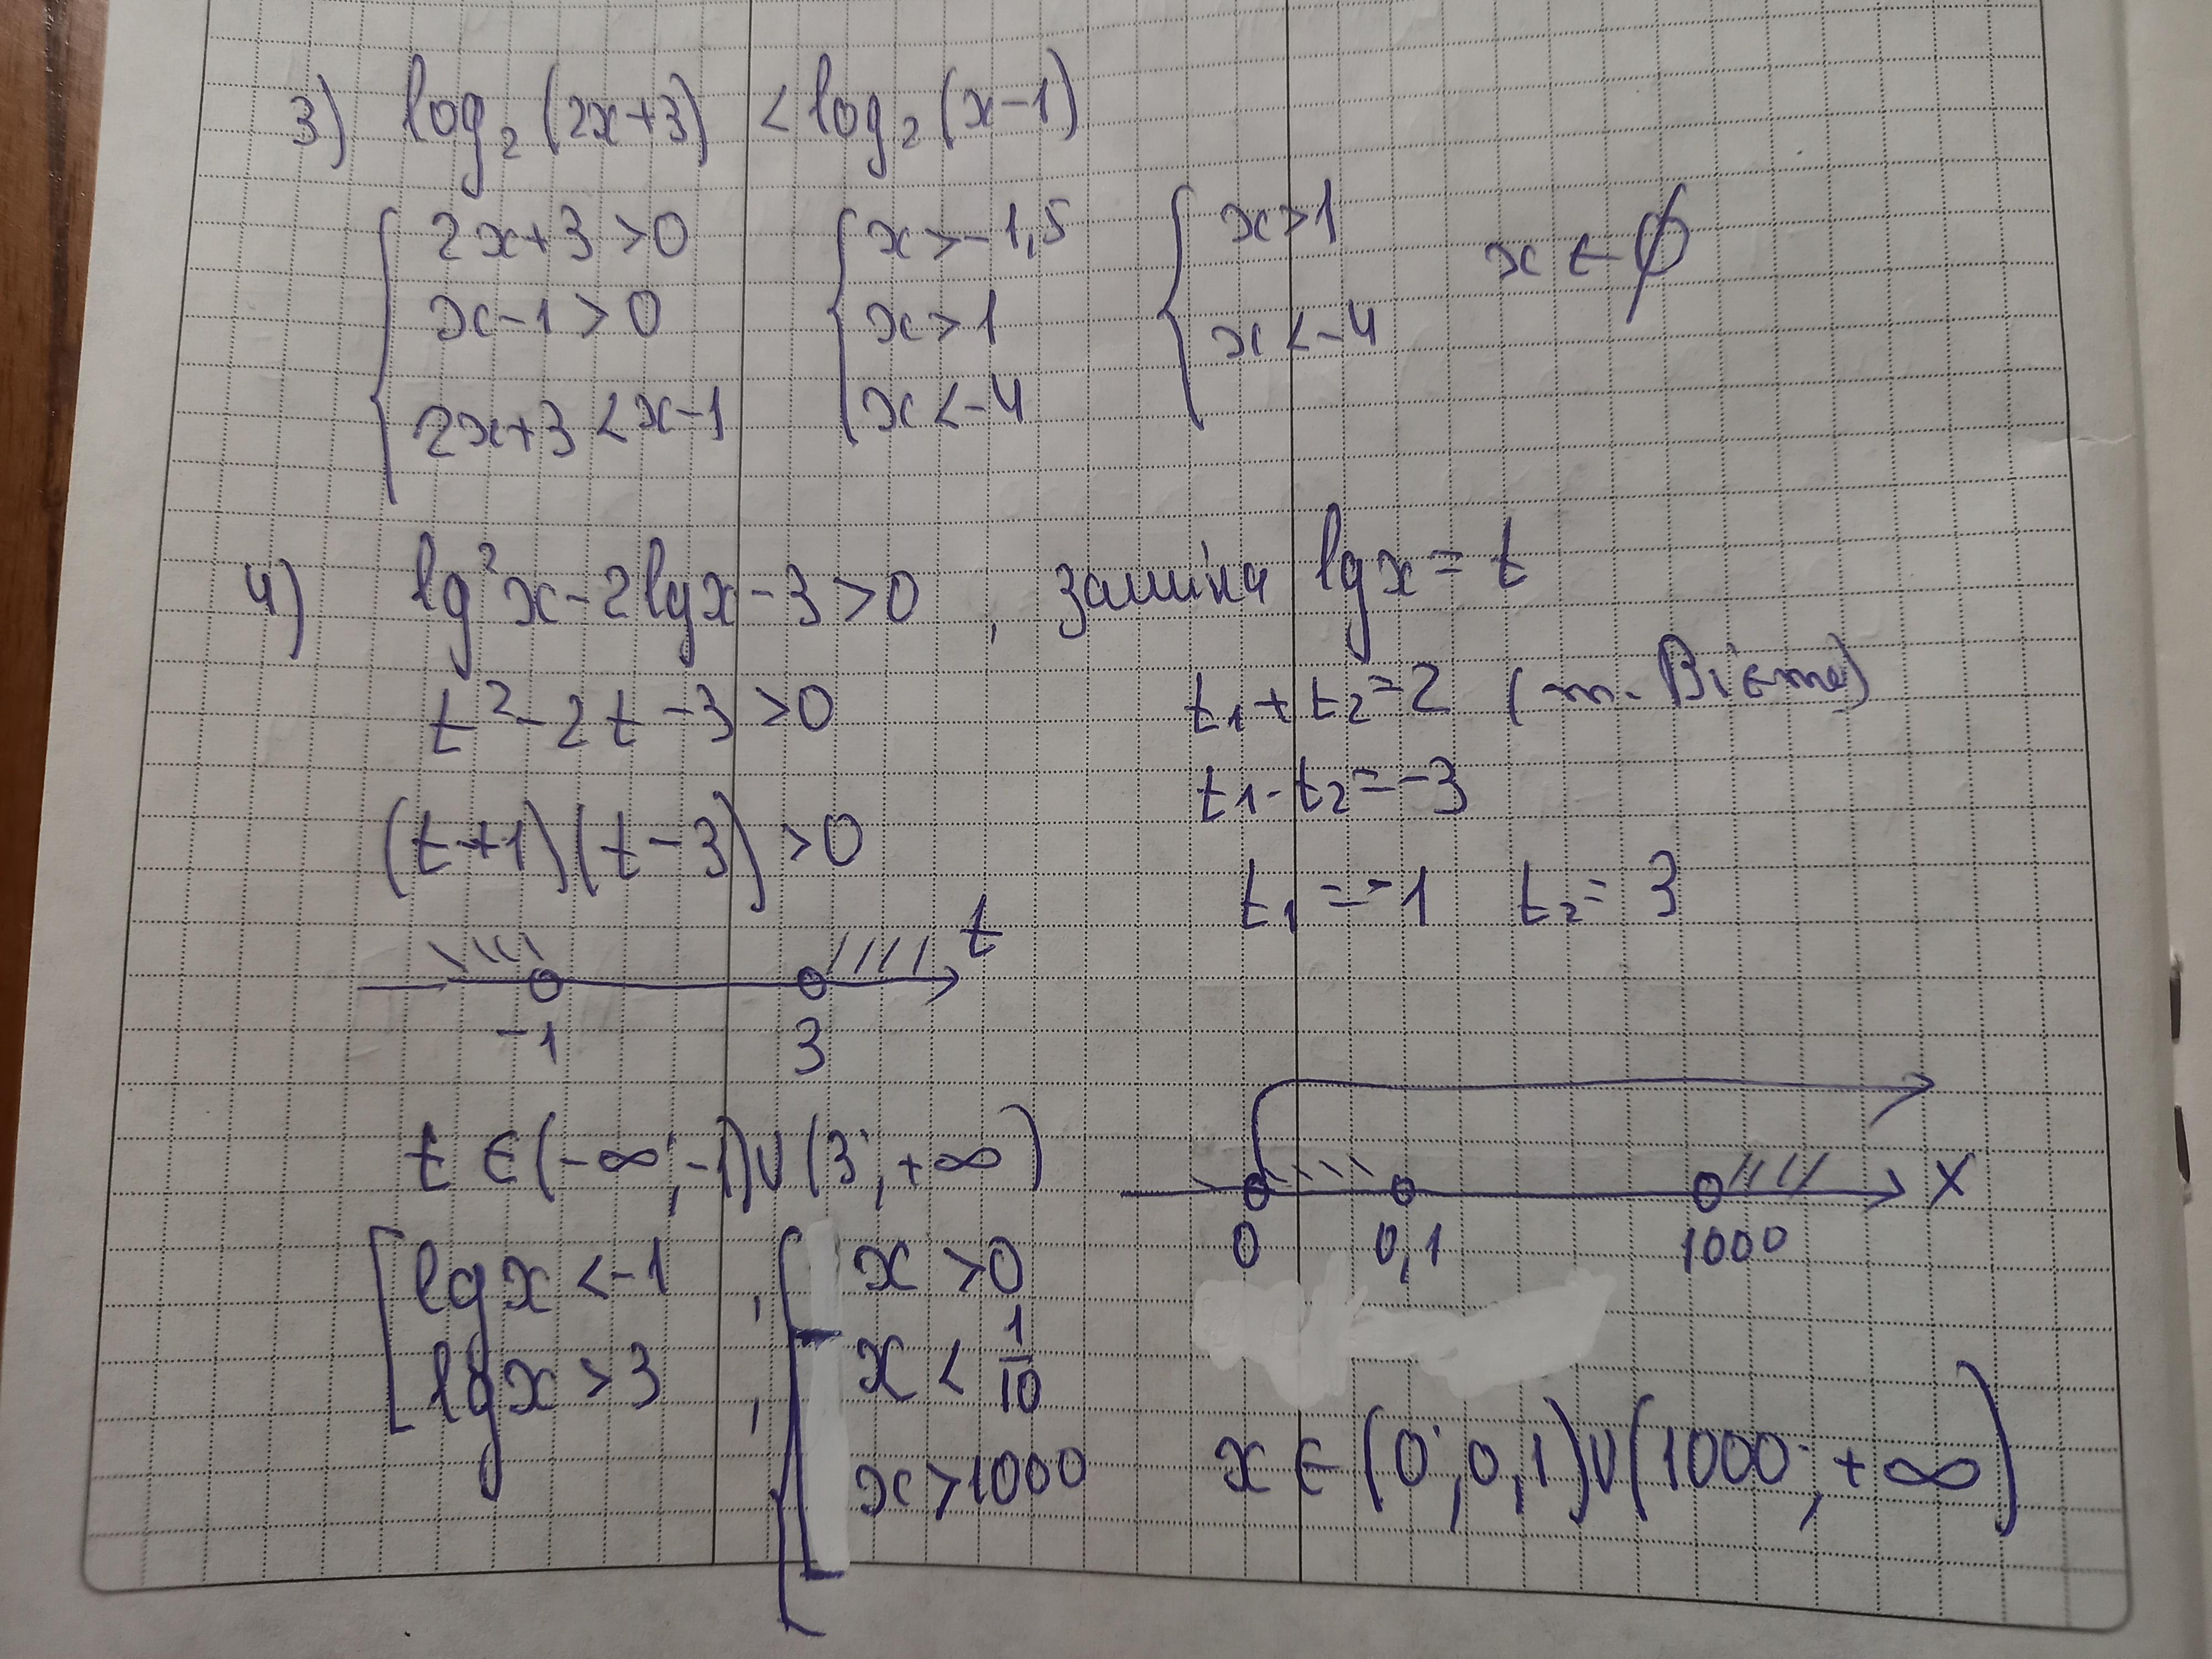 3) log₂(2x+3) < log₂(x-1)
{ 2x+3>0 { x>-1,5 { x>1 x ∈ ∅
x-1>0 x>1 x<-4
2x+3<x-1 x<-4
4) lg²x-2lgx-3>0, заміна lgx=t
t²-2t-3>0 t₁+t₂=2 (т. Вієта)
(t+1)(t-3)>0 t₁·t₂=-3
t₁=-1 t₂=3
t
-1 3
t ∈ (-∞;-1)∪(3;+∞)
x
0 0,1 1000
[ lgx<-1 ; { x>0
lgx>3 ; [ x<1/10
x>1000
x ∈ (0;0,1)∪(1000;+∞)